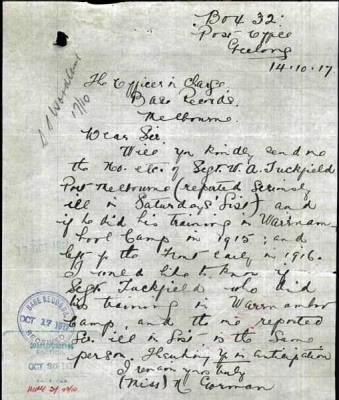 Box 32.
Post Office
Geelong
14.10.17
The Officer in Charge,
Base Records.
Melbourne.
Dear Sir
Will you kindly send me
the No. etc. of Sergt. W. A. Tuckfield
Port Melbourne (reported seriously
ill in Saturdays' List) and
if he did his training in Warrnam-
bool Camp in 1915; and
left for the Front early in 1916.
I would like to know if
Sergt. Tuckfield who did
his training in Warrnambool
Camp, and the one reported
ill in List, is the same
person. Thanking you in anticipation
I remain yours truly
(Miss) N. Gorman
17/10
BASE RECORDS
OCT 17 1917
RECEIVED
OCT 20 1917